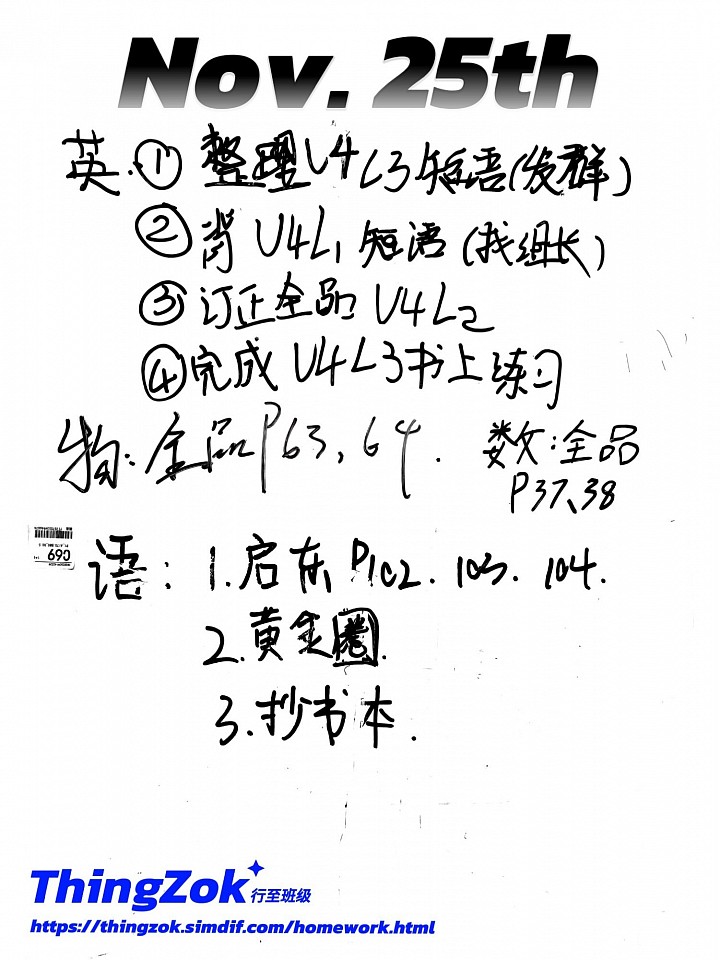 Nov. 25th
英.① 整理U4L3短语(发群)
② 背U4L1短语(找组长)
③ 订正全品U4L2
④ 完成U4L3书上练习
物:全品P63、64.
数:全品
P37、38
语:1.启东P102.103.104.
2.黄金圈.
3.抄书本.
C69
ThingZok
行至班级
https://thingzok.simdif.com/homework.html